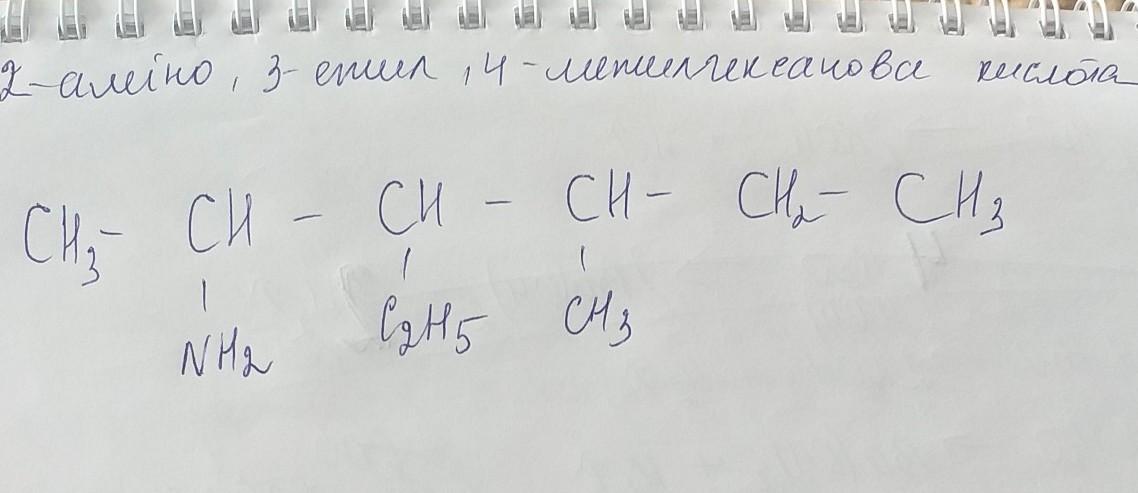 2-аміно, 3-етил, 4-метилгексанова кислота
CH3- CH - CH - CH- CH2- CH3
NH2 C2H5 CH3